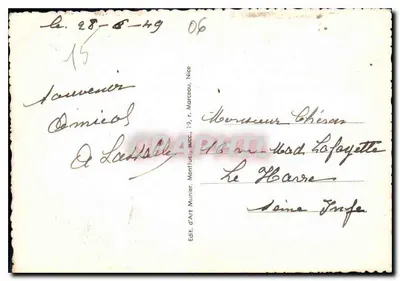 le 28-6-49
06
15
Souvenir
Amical
A Lassalle
Edit. d'Art Munier, Monthus, succ., 19, r. Marceau, Nice
Monsieur Chéron
16 rue Mad Lafayette
Le Havre
Seine Infe